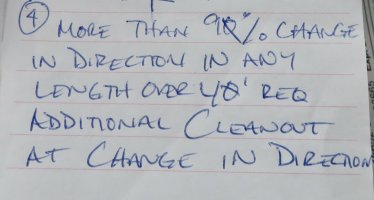 ④ MORE THAN 90% CHANGE
IN DIRECTION IN ANY
LENGTH OVER 40' REQ
ADDITIONAL CLEANOUT
AT CHANGE IN DIRECTION